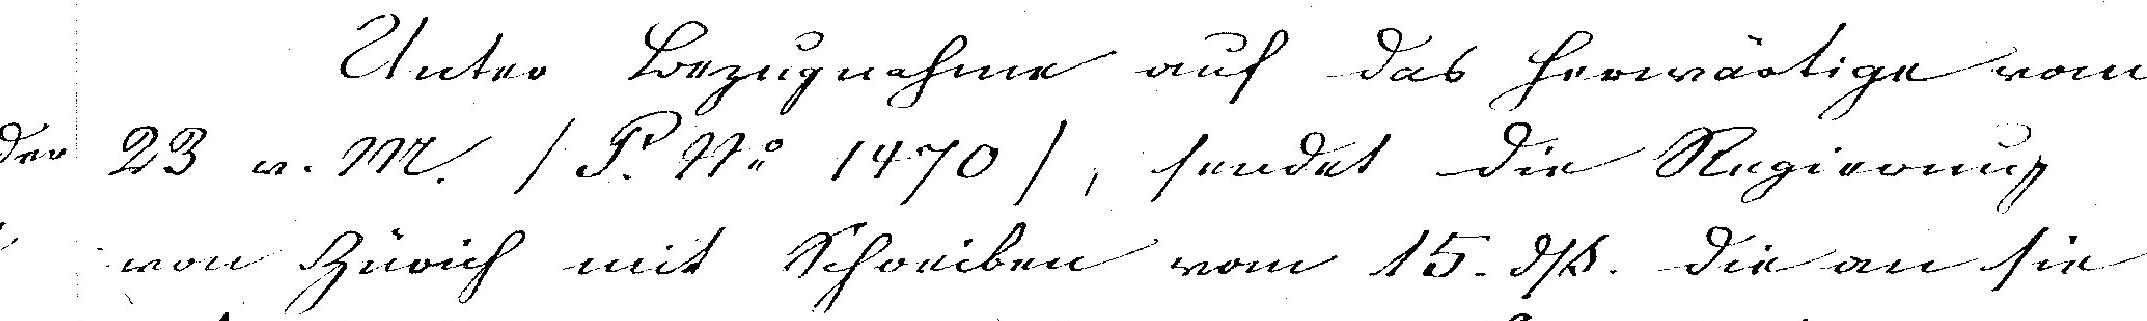 Unter Bezugnahme auf das herwärtige vom
der 23 v. M. / P. No 1470 /, sendet die Regierung
von Zürich mit Schreiben vom 15. dß. die an sie